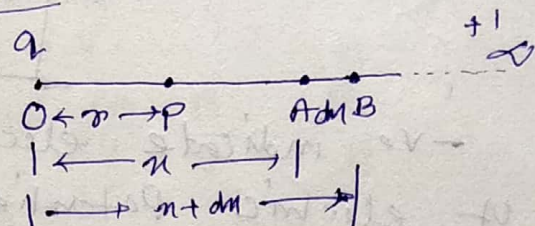 q +1 ∞
O ← r → P A dx B
← x →
→ x + dx →
- ve